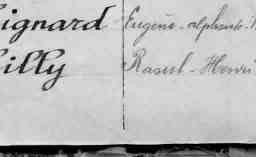 ignard Eugène-alphonse-
illy Raoul-Henri